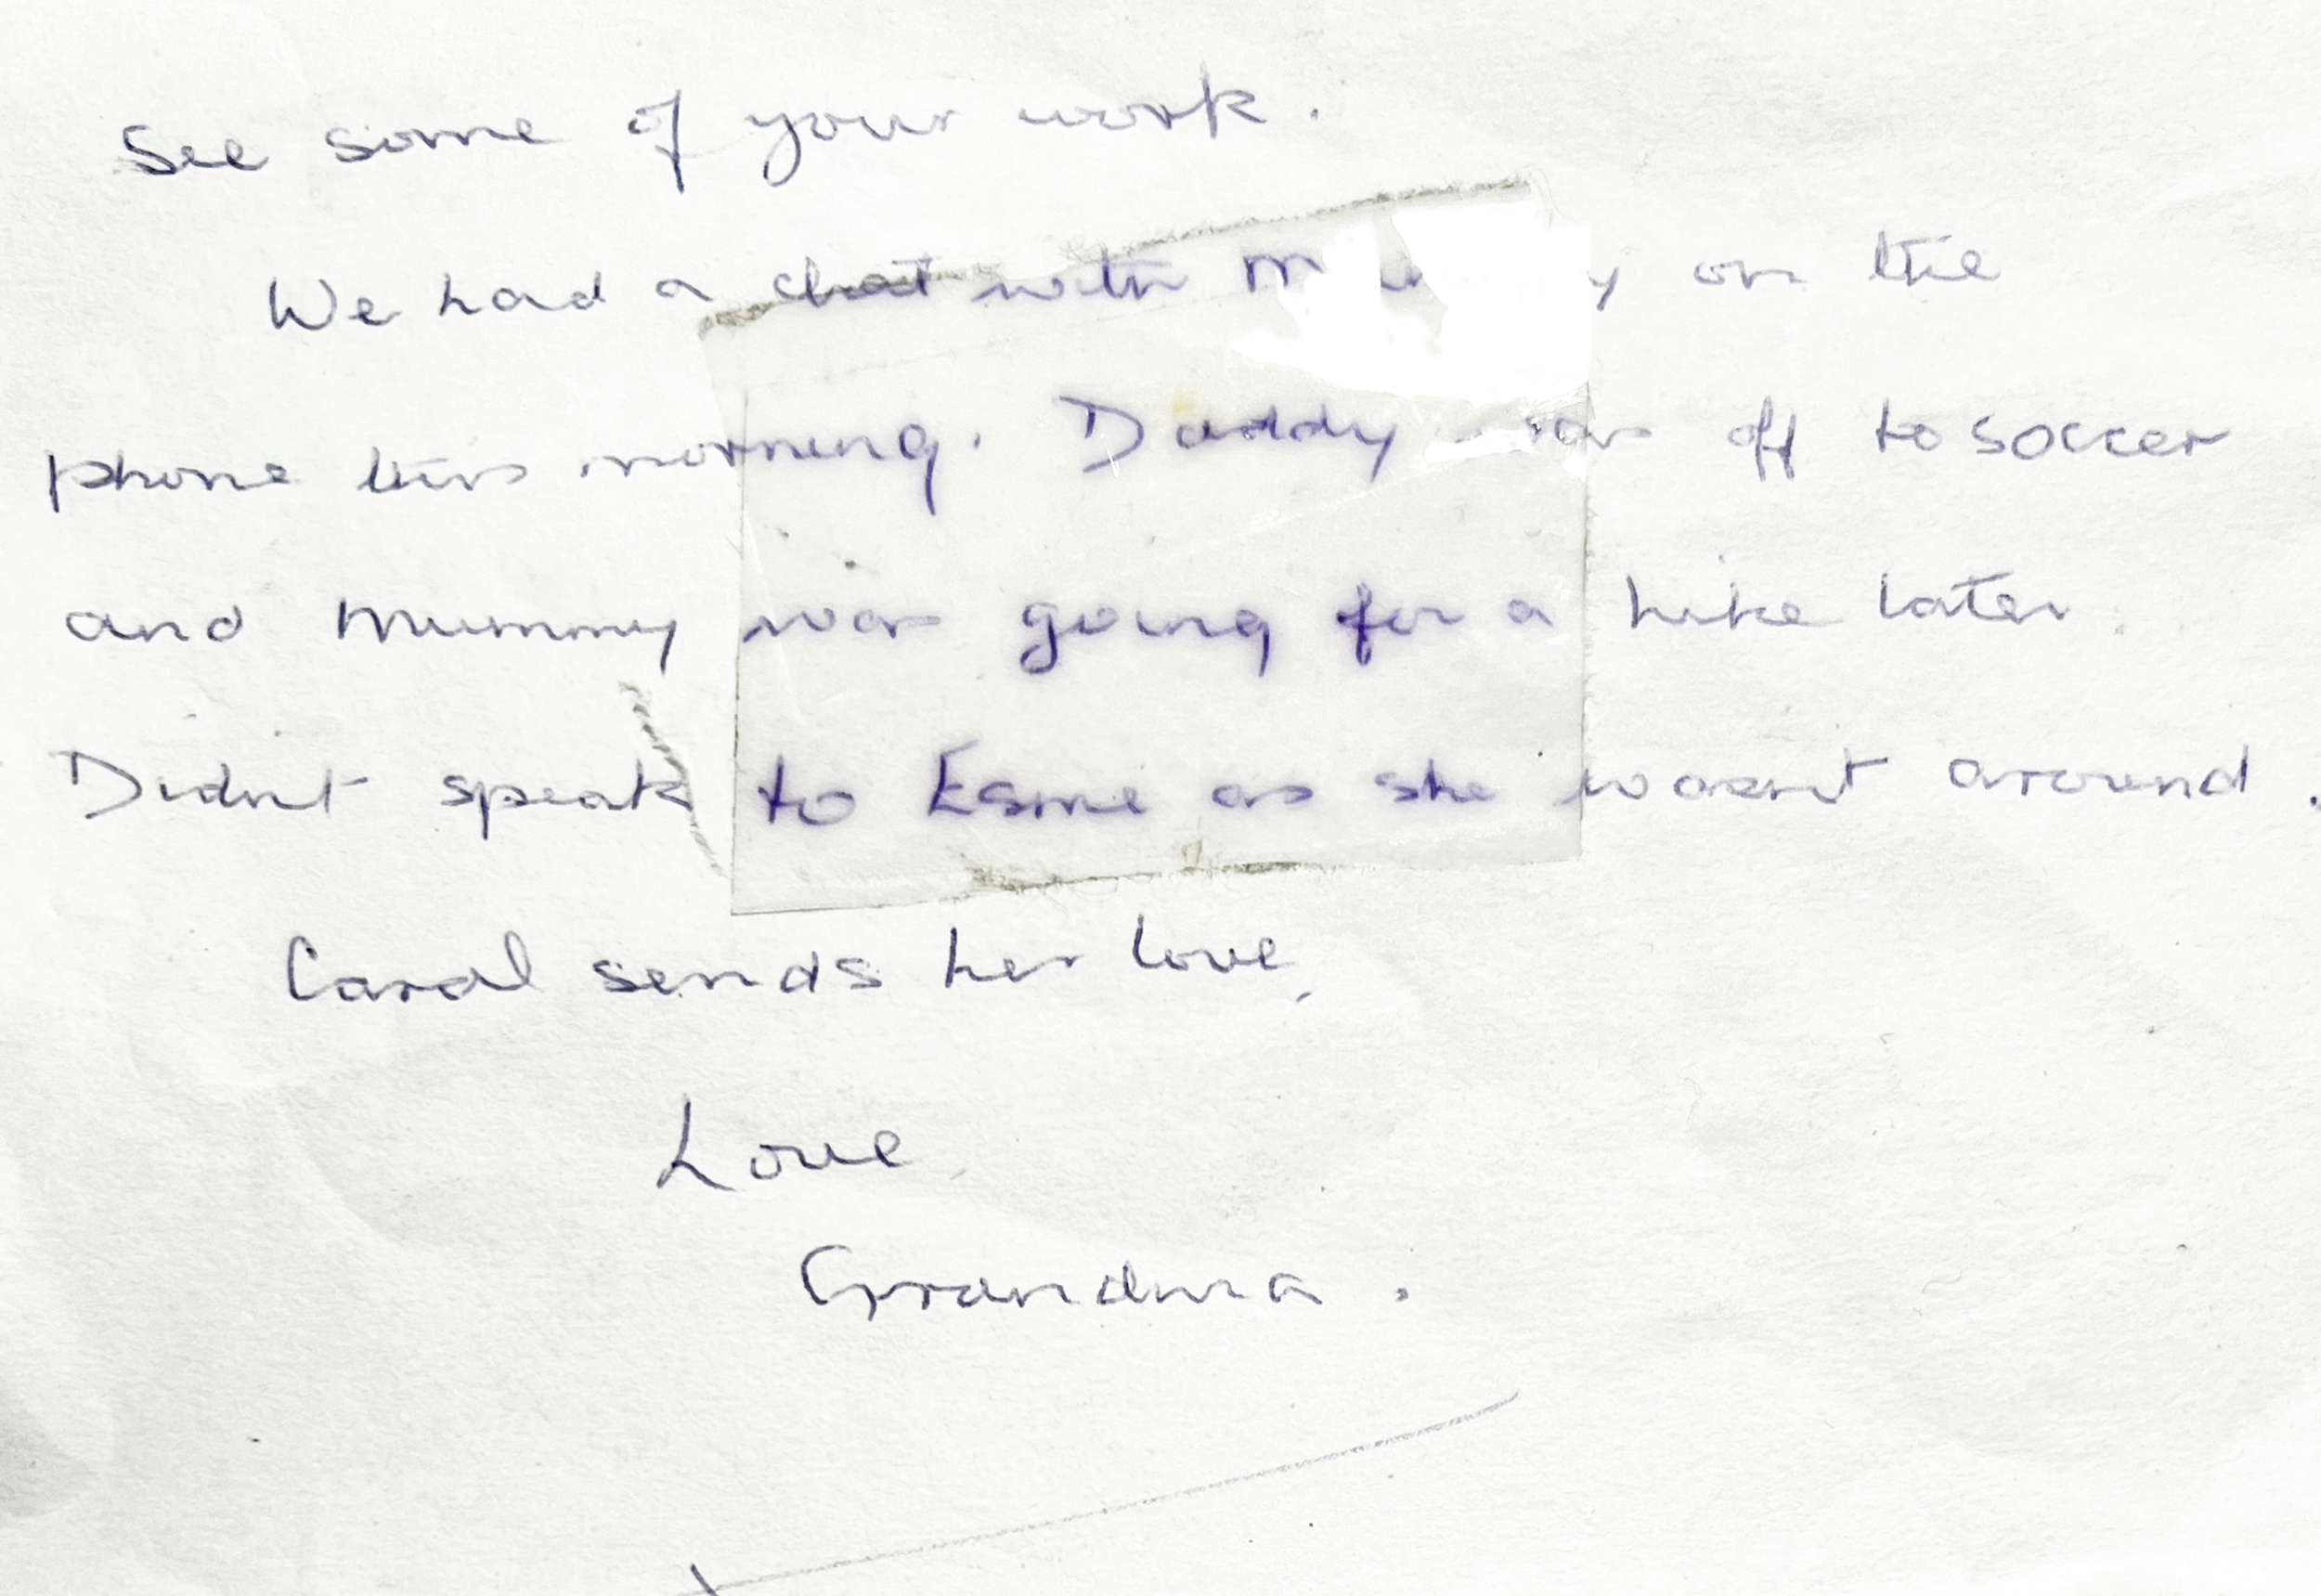 See some of your work.
We had a chat with on the
phone this morning. Daddy was off to soccer
and Mummy was going for a hike later.
Didn't speak to Esme as she wasn't around.
Carol sends her love,
Love
Grandma.